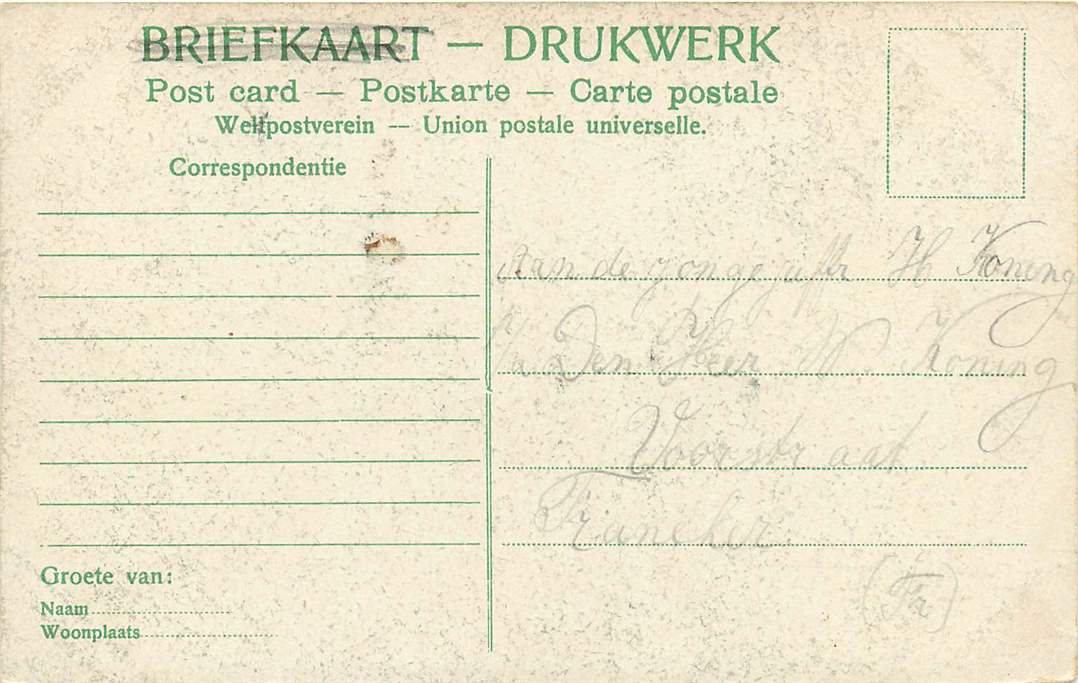 BRIEFKAART — DRUKWERK
Post card — Postkarte — Carte postale
Weltpostverein — Union postale universelle.
Correspondentie
Aan de jonge juffr H Koning
Den Heer W. Koning
Voorstraat
Franeker
(Fr)
Groete van:
Naam
Woonplaats